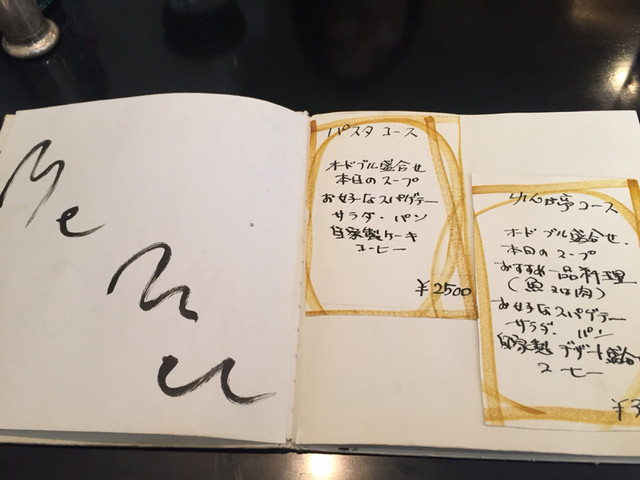 Menu
パスタコース
オードブル盛合せ
本日のスープ
お好きなスパゲテー
サラダ・パン
自家製ケーキ
コーヒー
¥2500
亭コース
オードブル盛合せ
本日のスープ
おすすめ一品料理
(魚又は肉)
お好きなスパゲテー
サラダ・パン
自家製デザート盛合
コーヒー
¥3